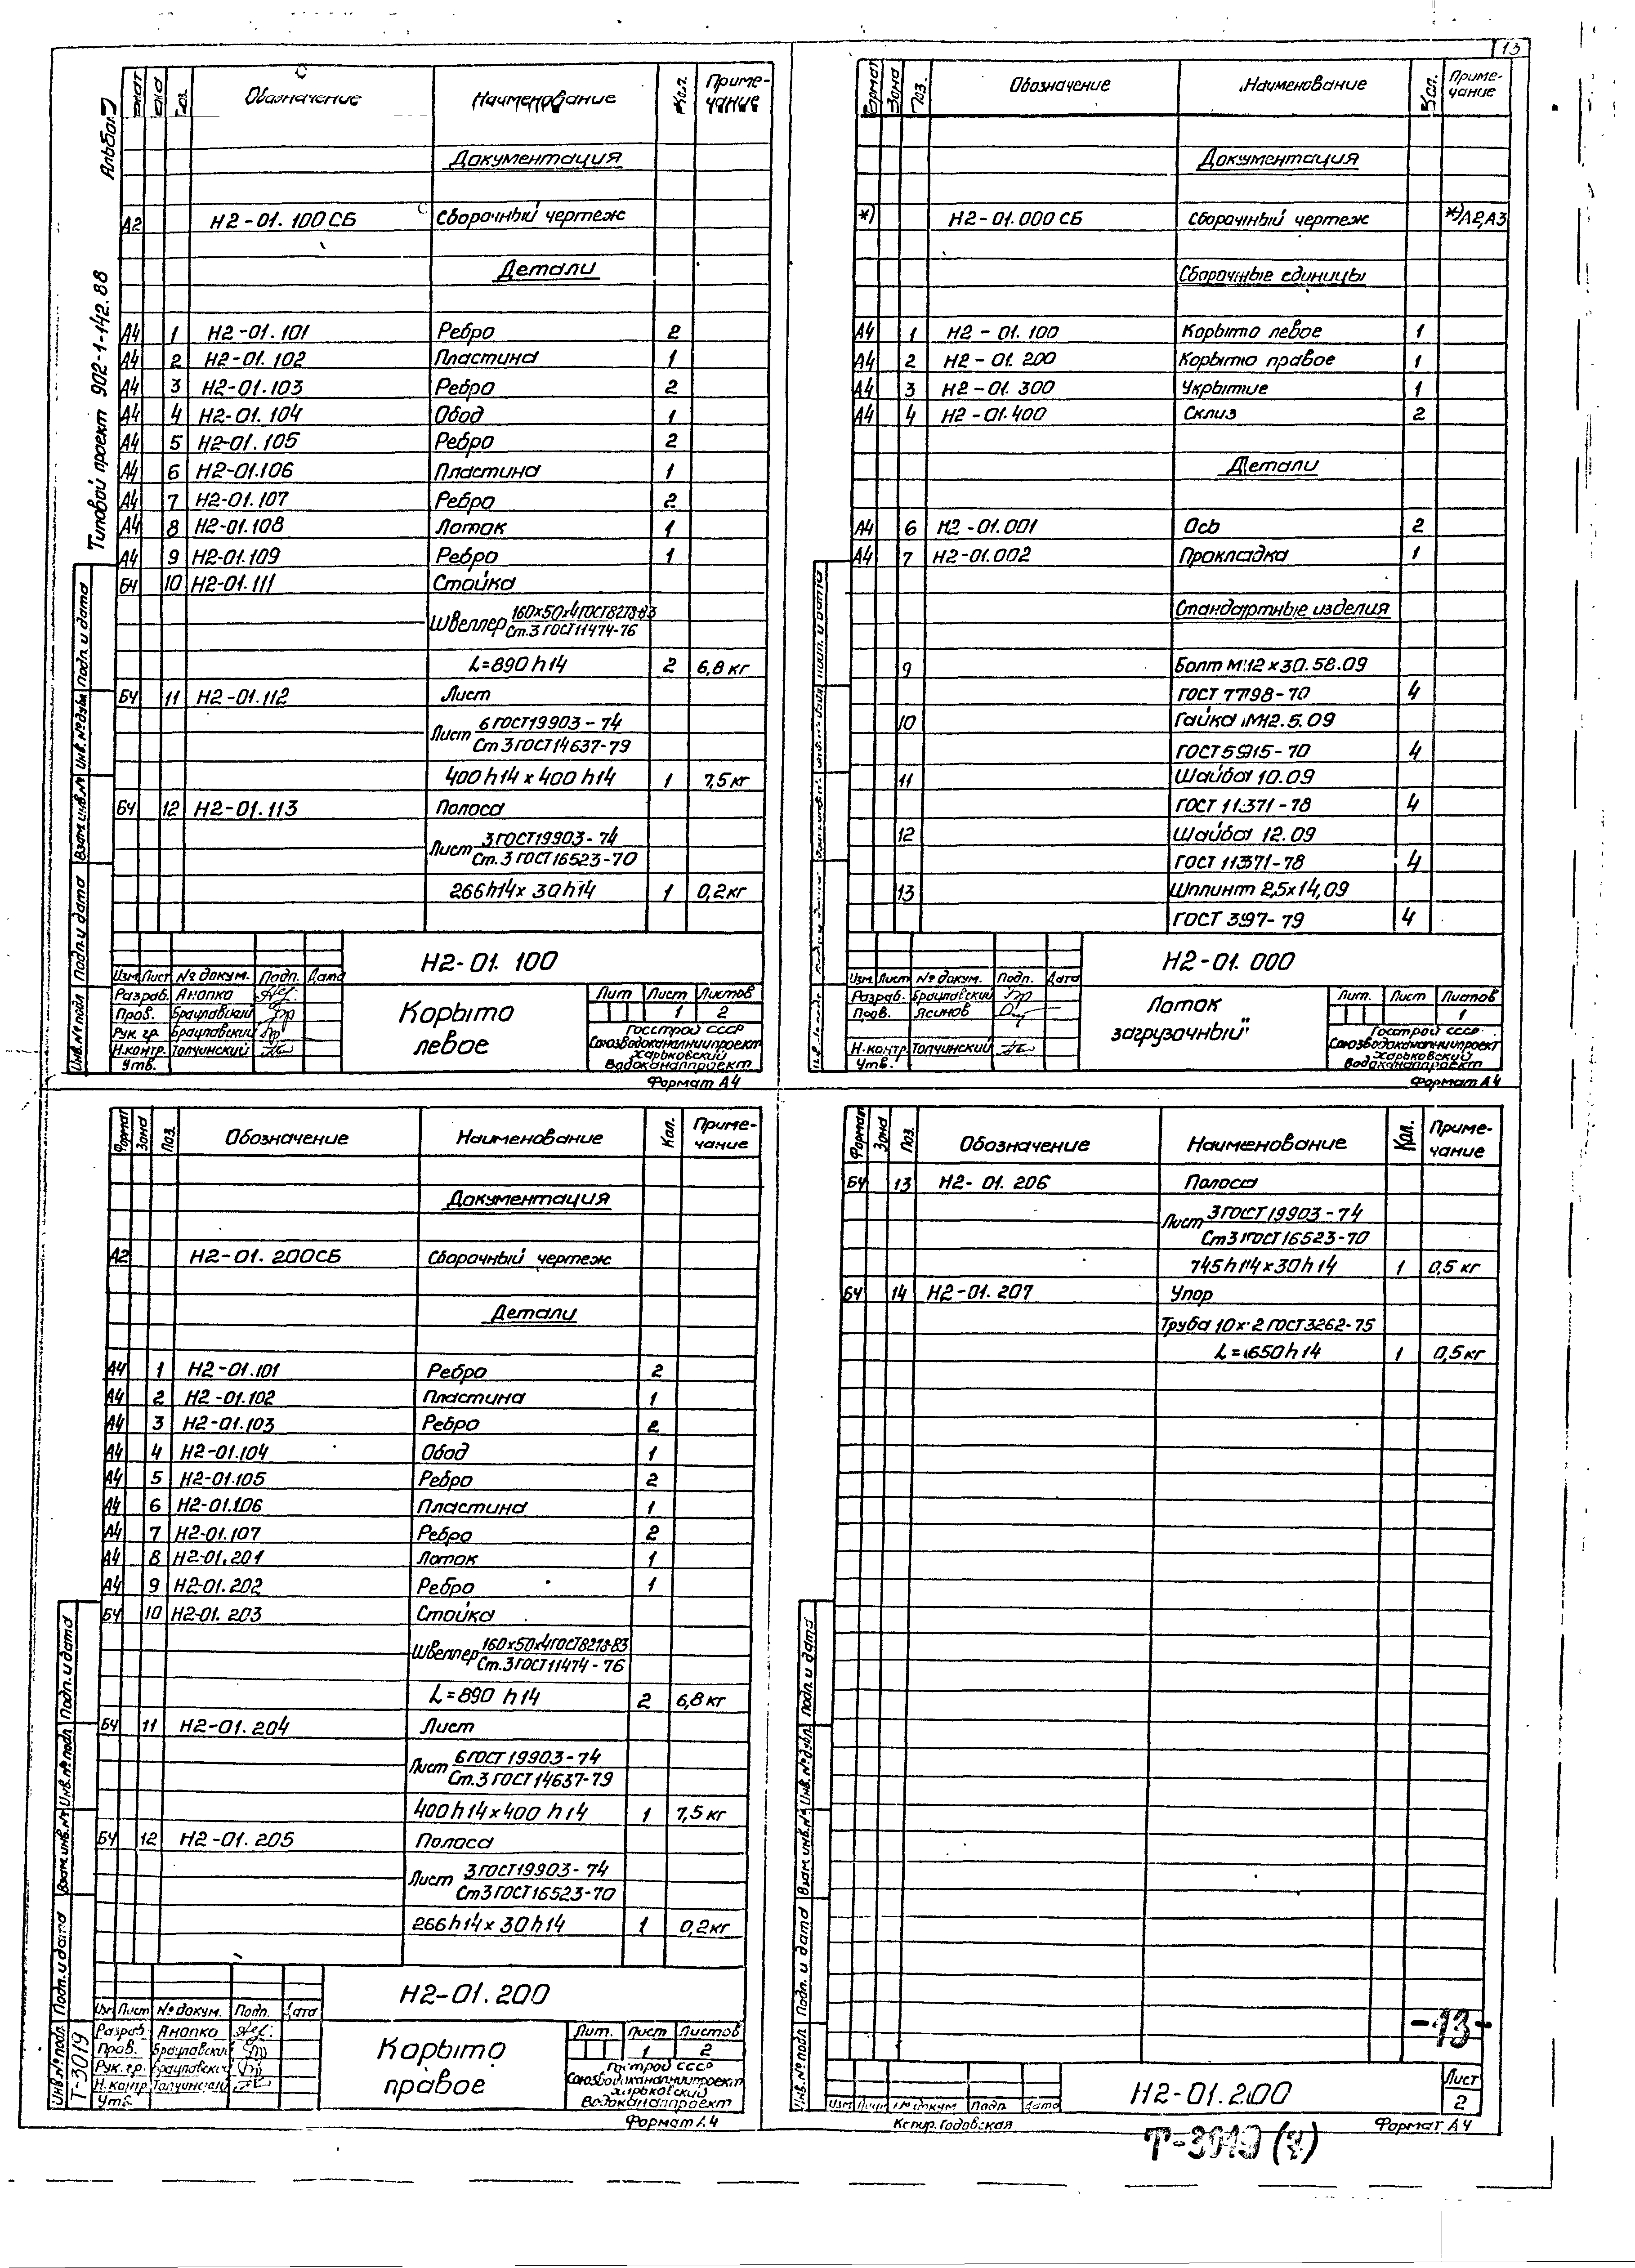 13
Альбом 7
Типовой проект 902-1-142.88
Поз. Обозначение Наименование Кол. Приме-
чание
Документация
А2 Н2-01.100СБ Сборочный чертеж
Детали
А4 1 Н2-01.101 Ребро 2
А4 2 Н2-01.102 Пластина 1
А4 3 Н2-01.103 Ребро 2
А4 4 Н2-01.104 Обод 1
А4 5 Н2-01.105 Ребро 2
А4 6 Н2-01.106 Пластина 1
А4 7 Н2-01.107 Ребро 2
А4 8 Н2-01.108 Лоток 1
А4 9 Н2-01.109 Ребро 1
БЧ 10 Н2-01.111 Стойка
Швеллер 160х50х4 ГОСТ8278-83
Ст.3 ГОСТ11474-76
L=890h14 2 6,8кг
БЧ 11 Н2-01.112 Лист
Лист 6 ГОСТ19903-74
Ст 3 ГОСТ14637-79
400h14 х 400h14 1 7,5кг
БЧ 12 Н2-01.113 Полоса
Лист 3 ГОСТ19903-74
Ст.3 ГОСТ16523-70
266h14х 30h14 1 0,2кг
Н2-01.100
Изм Лист № докум. Подп. Дата
Разраб. Анопко
Пров. Брацлавский
Рук. гр. Брацлавский
Н.контр. Толчинский
Утв.
Корыто
левое
Лит Лист Листов
1 2
Госстрой СССР
Союзводоканалниипроект
Харьковский
Водоканалпроект
Формат А4
Инв.№подл Подп.и дата Взам.инв.№ Инв.№дубл. Подп. и дата
Формат Зона Поз. Обозначение Наименование Кол. Приме-
чание
Документация
*) Н2-01.000СБ Сборочный чертеж *)А2,А3
Сборочные единицы
А4 1 Н2-01.100 Корыто левое 1
А4 2 Н2-01.200 Корыто правое 1
А4 3 Н2-01.300 Укрытие 1
А4 4 Н2-01.400 Склиз 2
Детали
А4 6 Н2-01.001 Ось 2
А4 7 Н2-01.002 Прокладка 1
Стандартные изделия
9 Болт М12х30.58.09
ГОСТ 7798-70 4
10 Гайка М12.5.09
ГОСТ5915-70 4
11 Шайба 10.09
ГОСТ 11371-78 4
12 Шайба 12.09
ГОСТ 11371-78 4
13 Шплинт 2,5х14,09
ГОСТ 397-79 4
Н2-01.000
Изм. Лист № докум. Подп. Дата
Разраб. Брацлавский
Пров. Ясинов
Н.контр Толчинский
Утв.
Лоток
загрузочный
Лит. Лист Листов
1
Госстрой СССР
Союзводоканалниипроект
Харьковский
Водоканалпроект
Формат А4
Формат Зона Поз. Обозначение Наименование Кол. Приме-
чание
Документация
А2 Н2-01.200СБ Сборочный чертеж
Детали
А4 1 Н2-01.101 Ребро 2
А4 2 Н2-01.102 Пластина 1
А4 3 Н2-01.103 Ребро 2
А4 4 Н2-01.104 Обод 1
А4 5 Н2-01.105 Ребро 2
А4 6 Н2-01.106 Пластина 1
А4 7 Н2-01.107 Ребро 2
А4 8 Н2-01.201 Лоток 1
А4 9 Н2-01.202 Ребро 1
БЧ 10 Н2-01.203 Стойка
Швеллер 160х50х4 ГОСТ8278-83
Ст.3 ГОСТ11474-76
L=890 h14 2 6,8кг
БЧ 11 Н2-01.204 Лист
Лист 6 ГОСТ 19903-74
Ст.3 ГОСТ14637-79
400h14х400 h14 1 7,5кг
БЧ 12 Н2-01.205 Полоса
Лист 3 ГОСТ19903-74
Ст3 ГОСТ16523-70
266h14х 30h14 1 0,2кг
Н2-01.200
Изм Лист № докум. Подп. Дата
Разраб. Анопко
Пров. Брацлавский
Рук.гр. Брацлавский
Н.контр Толчинский
Утв.
Корыто
правое
Лит. Лист Листов
1 2
Госстрой СССР
Союзводоканалниипроект
Харьковский
Водоканалпроект
Формат А4
Инв.№подл. Подп. и дата Взам.инв.№ Инв.№подл. Подп. и дата
Т-3019
Формат Зона Поз. Обозначение Наименование Кол. Приме-
чание
БЧ 13 Н2-01.206 Полоса
Лист 3 ГОСТ 19903-74
Ст3 ГОСТ16523-70
745h14х30h14 1 0,5кг
БЧ 14 Н2-01.207 Упор
Труба 10х2 ГОСТ3262-75
L=650h14 1 0,5кг
-13-
Инв.№подл. Подп. и дата Взам.инв.№ Инв.№дубл. Подп. и дата
Изм Лист № докум Подп. Дата
Н2-01.200
Лист
2
Копир. Годовская
Формат А4
Т-3019